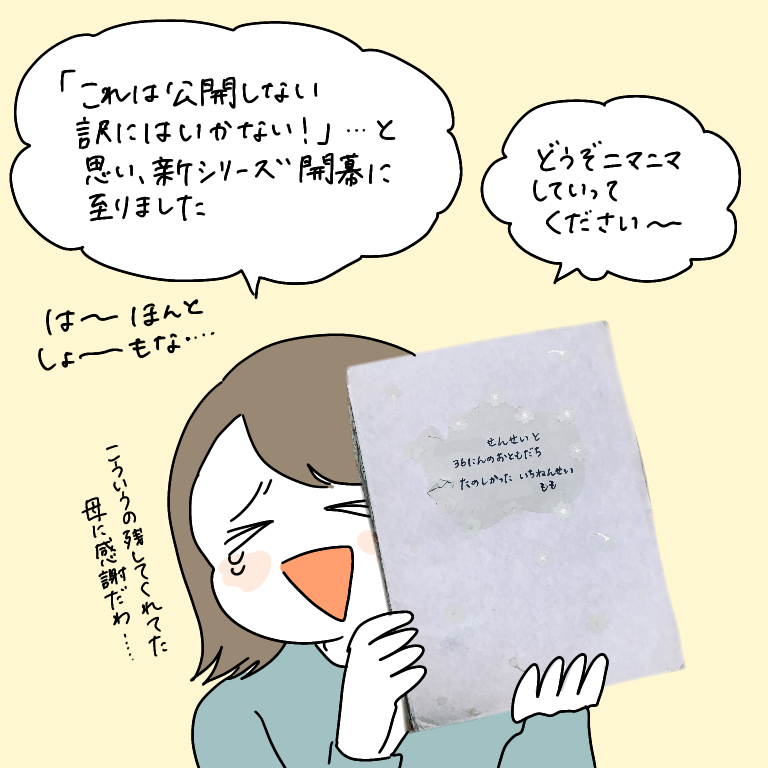 「これは公開しない
訳にはいかない！」…と
思い、新シリーズ開幕に
至りました
どうぞニマニマ
していって
ください〜
は〜ほんと
しょ〜もな……
こういうの残してくれてた
母に感謝だわ……
せんせいと
36にんのおともだち
たのしかった いちねんせい
もも